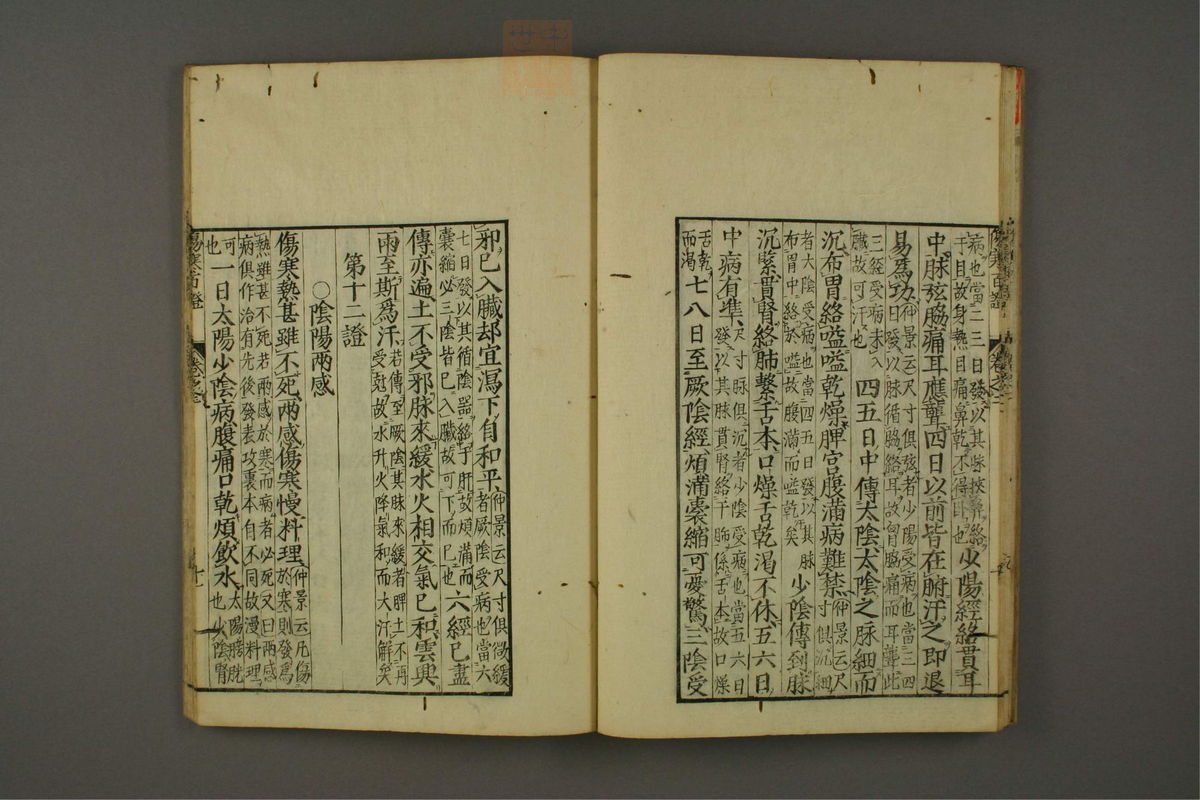 傷寒百證
病也當二三日發以其脉挾鼻絡
于目故身熱目痛鼻乾不得卧也
少陽經絡貫耳
中脉弦脇痛耳應聾四日以前皆在腑汗之即退
易爲功
仲景云尺寸俱弦者少陽受病也當三四
日發以脉循脇絡耳故胷脇痛而耳聾此
三經受病未入
臟故可汗也
四五日中傳太陰太陰之脉細而
沉布胃絡嗌嗌乾燥脾宫腹滿病難禁
仲景云尺
寸俱沉細
者太陰受病也當四五日發以其脉
布胃中絡於嗌故腹滿而嗌乾矣
少陰傳到脉
沉緊貫腎絡肺繫舌本口燥舌乾渴不休五六日
中病有準
尺寸脉俱沉者少陰受病也當五六日
發以其脉貫腎絡于肺係舌本故口燥
舌乾
而渴
七八日至厥陰經煩滿囊縮可憂驚三陰受
邪已入臟却宜瀉下自和平
仲景云尺寸俱微緩
者厥陰受病也當六
七日發以其循陰器絡于肝故煩滿而
囊縮必三陰皆已入臟故可下而已也
六經已盡
傳亦遍土不受邪脉來緩水火相交氣已和雲興
雨至斯爲汗
若傳至厥陰其脉來緩者脾土不再
受尅故水升火降氣和而大汗解矣
第十二證
○陰陽兩感
傷寒熱甚雖不死兩感傷寒慢料理
仲景云凡傷
於寒則發爲
熱雖甚不死若兩感於寒而病者必死又曰兩感
病俱作治有先後發表攻裏本自不同故漫料理
可
也
一日太陽少陰病腹痛口乾煩飲水
太陽膀胱
也少陰腎
傷寒百證